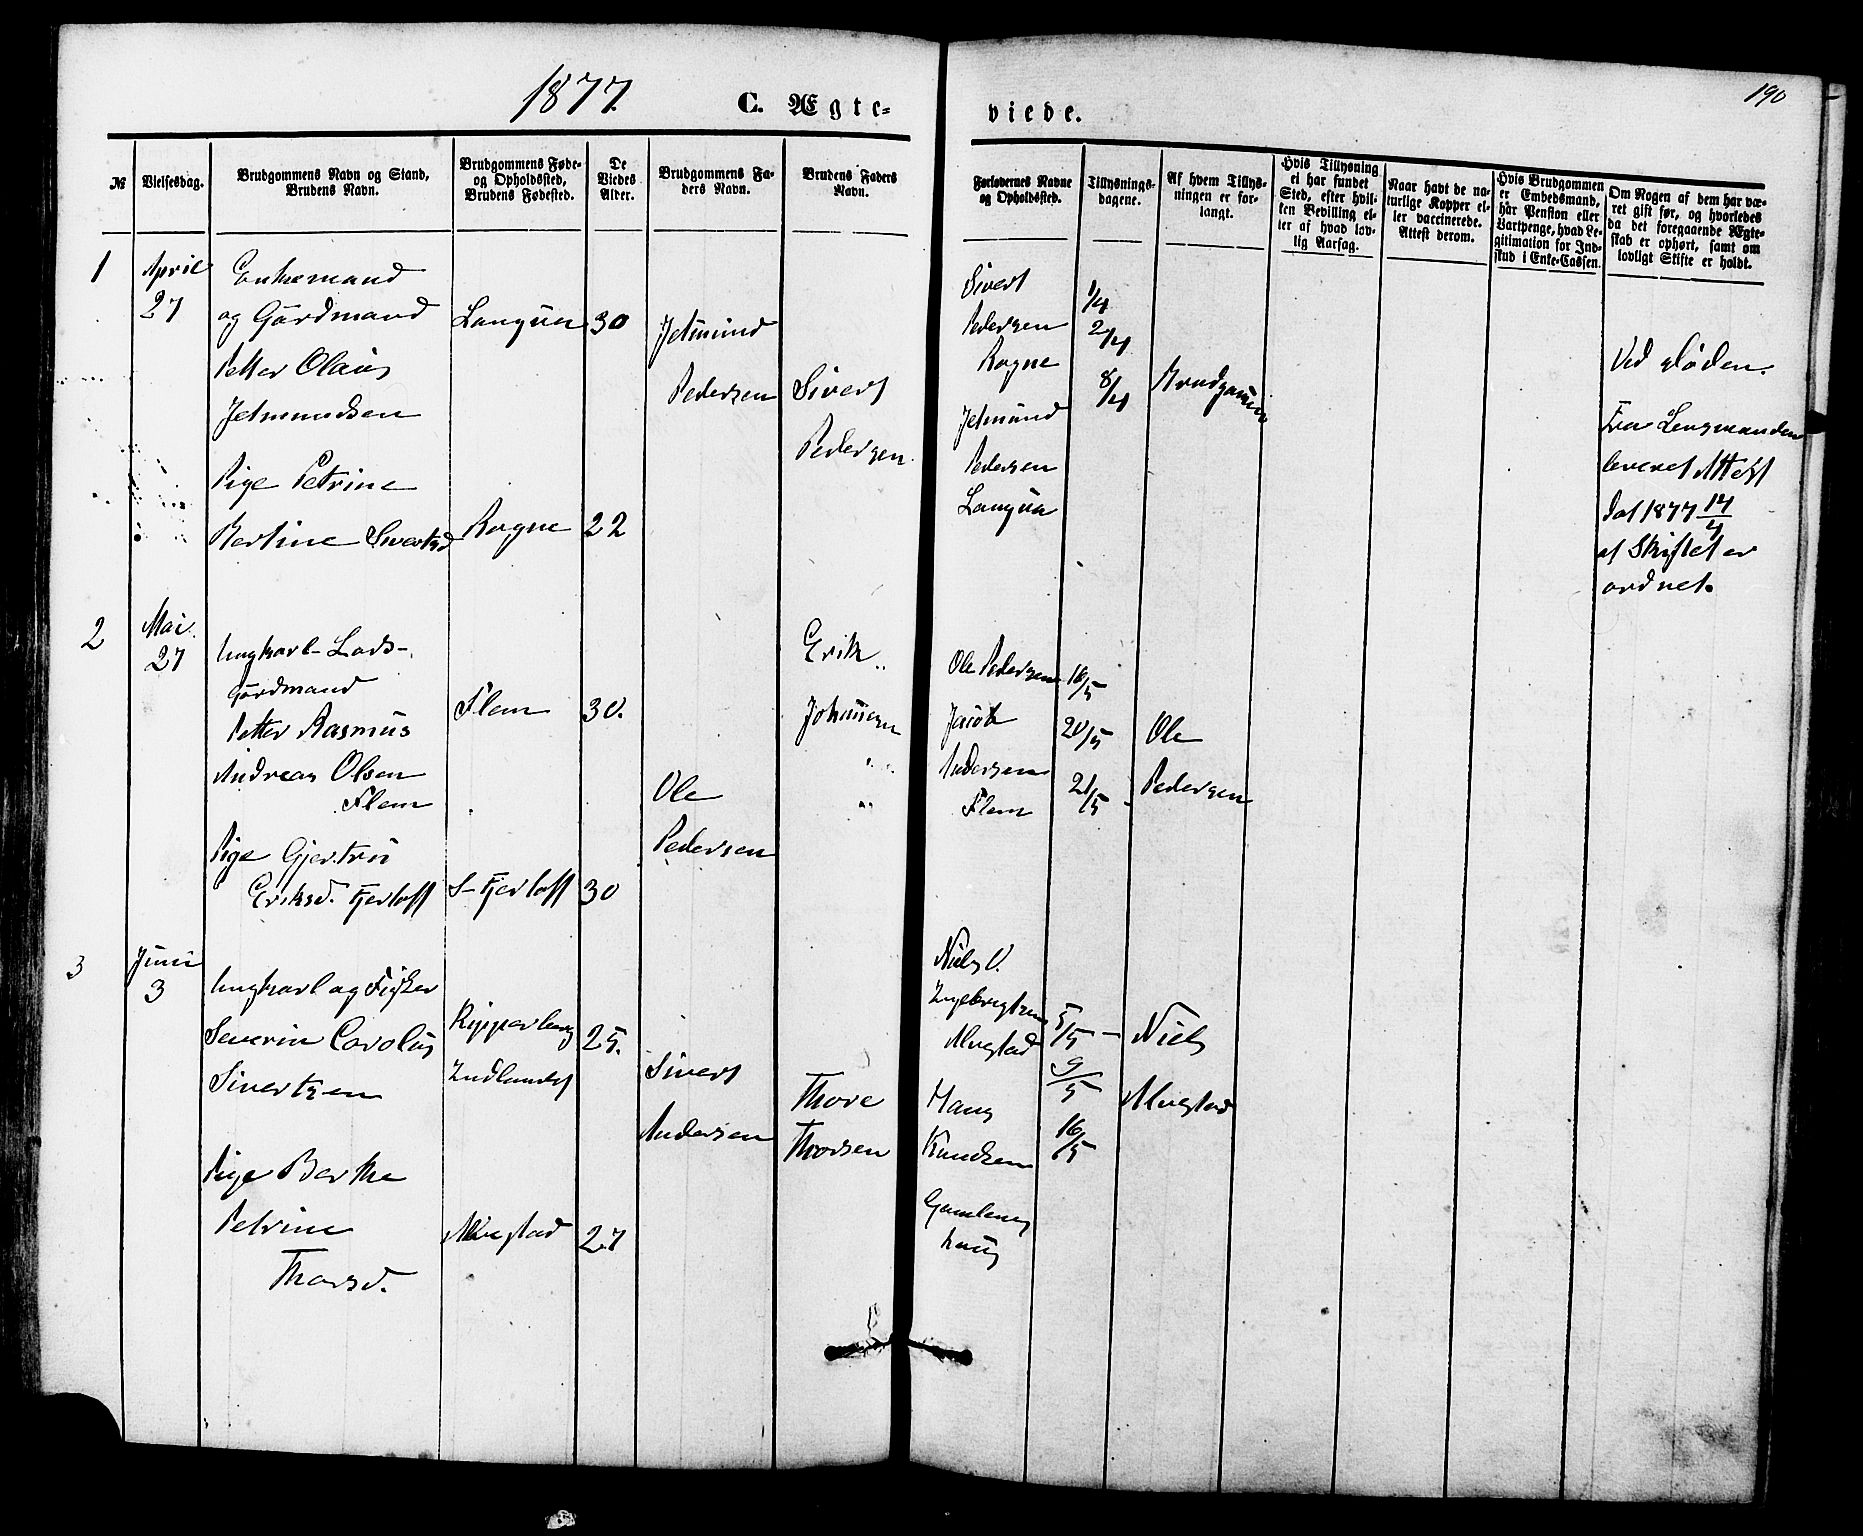 1877.
C. Ægte=
viede.
190
№
Vielsesdag.
Brudgommens Navn og Stand,
Brudens Navn.
Brudgommens Føde=
og Opholdssted,
Brudens Fødested.
De
Viedes
Alder.
Brudgommens Fa=
ders Navn.
Brudens Faders
Navn.
Forlovernes Navne
og Opholdssted.
Tillysnings=
dagene.
Af hvem Tillys=
ningen er for=
langt.
Hvis Tillysning
ei har fundet
Sted, efter hvil=
ken Bevilling el=
ler af hvad lov=
lig Aarsag.
Naar havt de na=
turlige Kopper el=
ler vaccinerede.
Attest derom.
Hvis Brudgommen
er Embedsmand,
har Pension eller
Vartpenge, hvad Le=
gitimation for Ind=
skud i Enke=Cassen.
Om Nogen af dem har væ=
ret gift før, og hvorledes
da det foregaaende Ægte=
skab er ophørt, samt om
lovligt Skifte er holdt.
1
April
27
Enkemand
og Gårdmand
Petter Olaus
Jetmundsen
Pige Petrine
Bertine Sivertsd
Langva
30
Rogne
22
Jetmund
Pedersen
Sivert
Pedersen
Sivert
Pedersen
Rogne
Jetmund
Pedersen
Langva
1/4
2/4
8/4
Brudgommen
Ved Døden.
Fra Lensmanden
leveret Attest
dat 1877 14/4
at Skiftet er
ordnet.
2
Mai
27
Ungkarl
Gårdmand
Petter Rasmus
Andreas Olsen
Flem
Pige Gjertrü
Eriksd. Fjertoft
Flem
30.
S-Fjertoft
30
Ole
Pedersen
Erik
Johnsen
Ole Pedersen
Jacob
Andersen
Flem
16/5
20/5
21/5
Ole
Pedersen
3
Juni
3
Ungkarl og Fisker
Severin Carolus
Sivertsen
Pige Berthe
Petrine
Thorsd.
Kipperberg
Indlandet
25.
Alvestad
27
Sivert
Andersen
Thore
Thorsen
Niels V.
Ingebrigtsen
Alvestad
Hans
Knudsen
Gamlem
haug
5/5
9/5
16/5
Niels
Alvestad